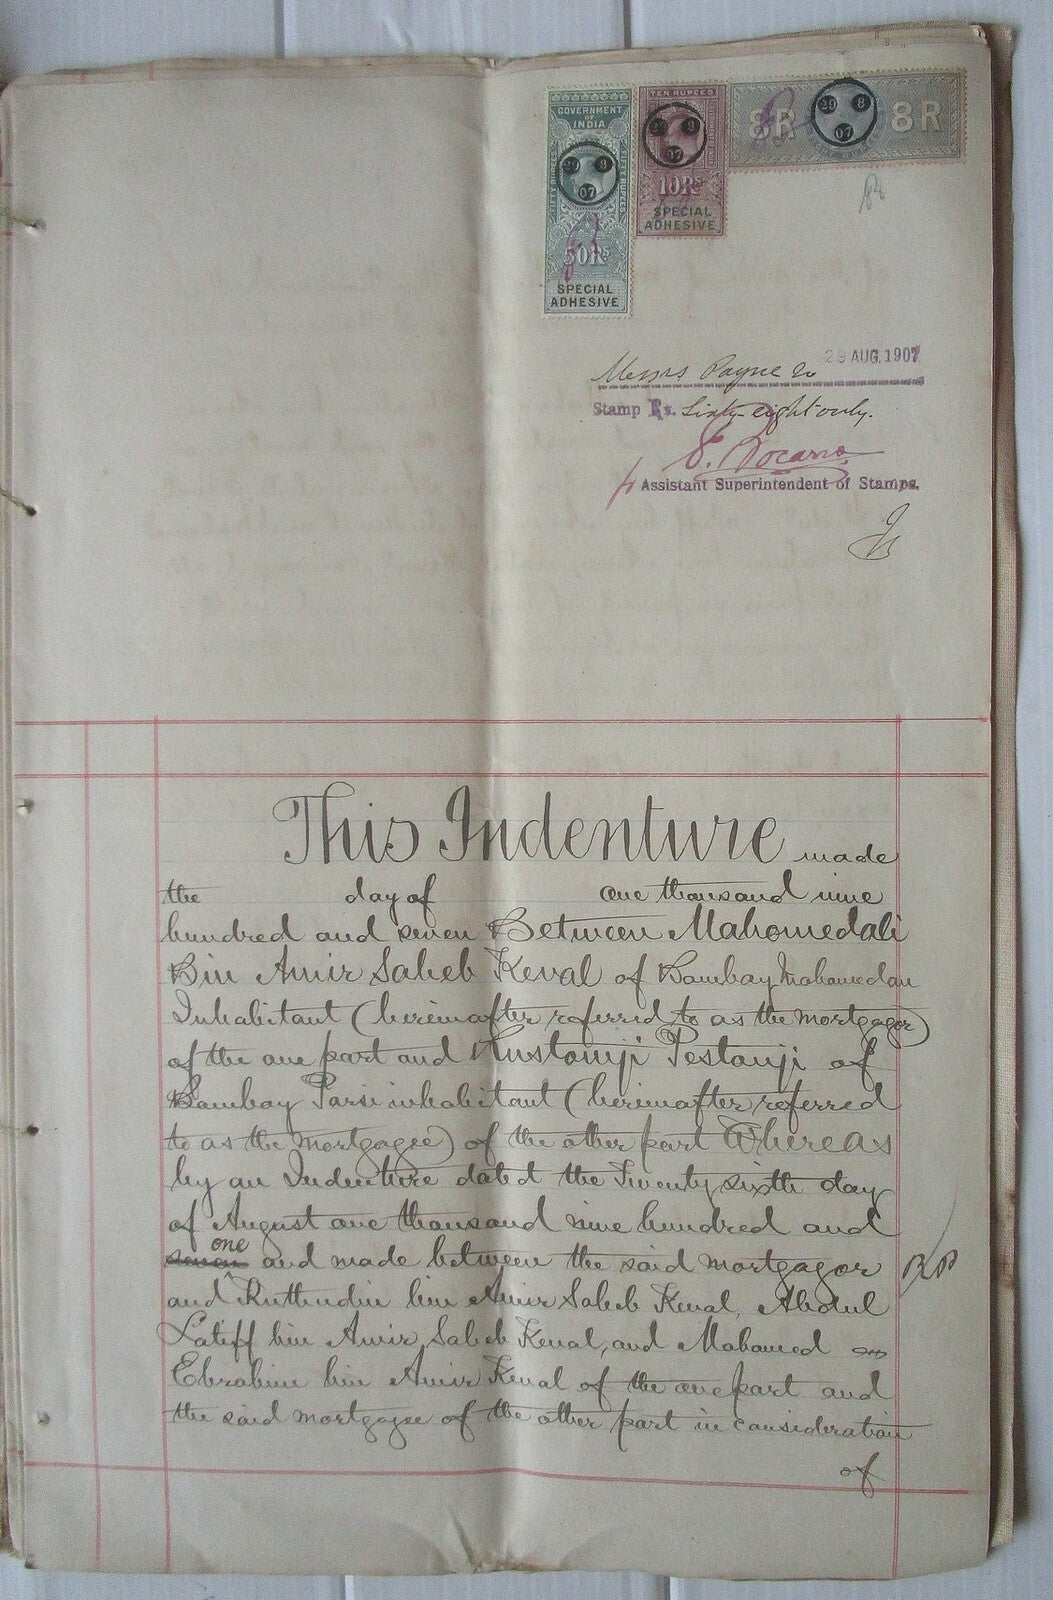 GOVERNMENT
OF
INDIA
FIFTY RUPEES
FIFTY RUPEES
29 8
07
50Rs
SPECIAL
ADHESIVE
TEN RUPEES
07
10Rs
SPECIAL
ADHESIVE
8R
29 8
07
8R
29 AUG. 1907
Messrs Payne &
Stamp Rs. Sixty-eight only.
Assistant Superintendent of Stamps.
This Indenture made
the day of one thousand nine
hundred and seven Between Mahomedali
Bin Amir Saheb Keval of Bombay Mahomedan
Inhabitant (hereinafter referred to as the mortgagor)
of the one part and Rustomji Pestanji of
Bombay Parsi inhabitant (hereinafter referred
to as the mortgagee) of the other part Whereas
by an Indenture dated the Twenty sixth day
of August one thousand nine hundred and
seven one and made between the said mortgagor
and Kuttnudin bin Amir Saheb Keval, Abdul
Latiff bin Amir Saheb Keval, and Mahomed
Ebrahim bin Amir Keval of the one part and
the said mortgagee of the other part in consideration
of